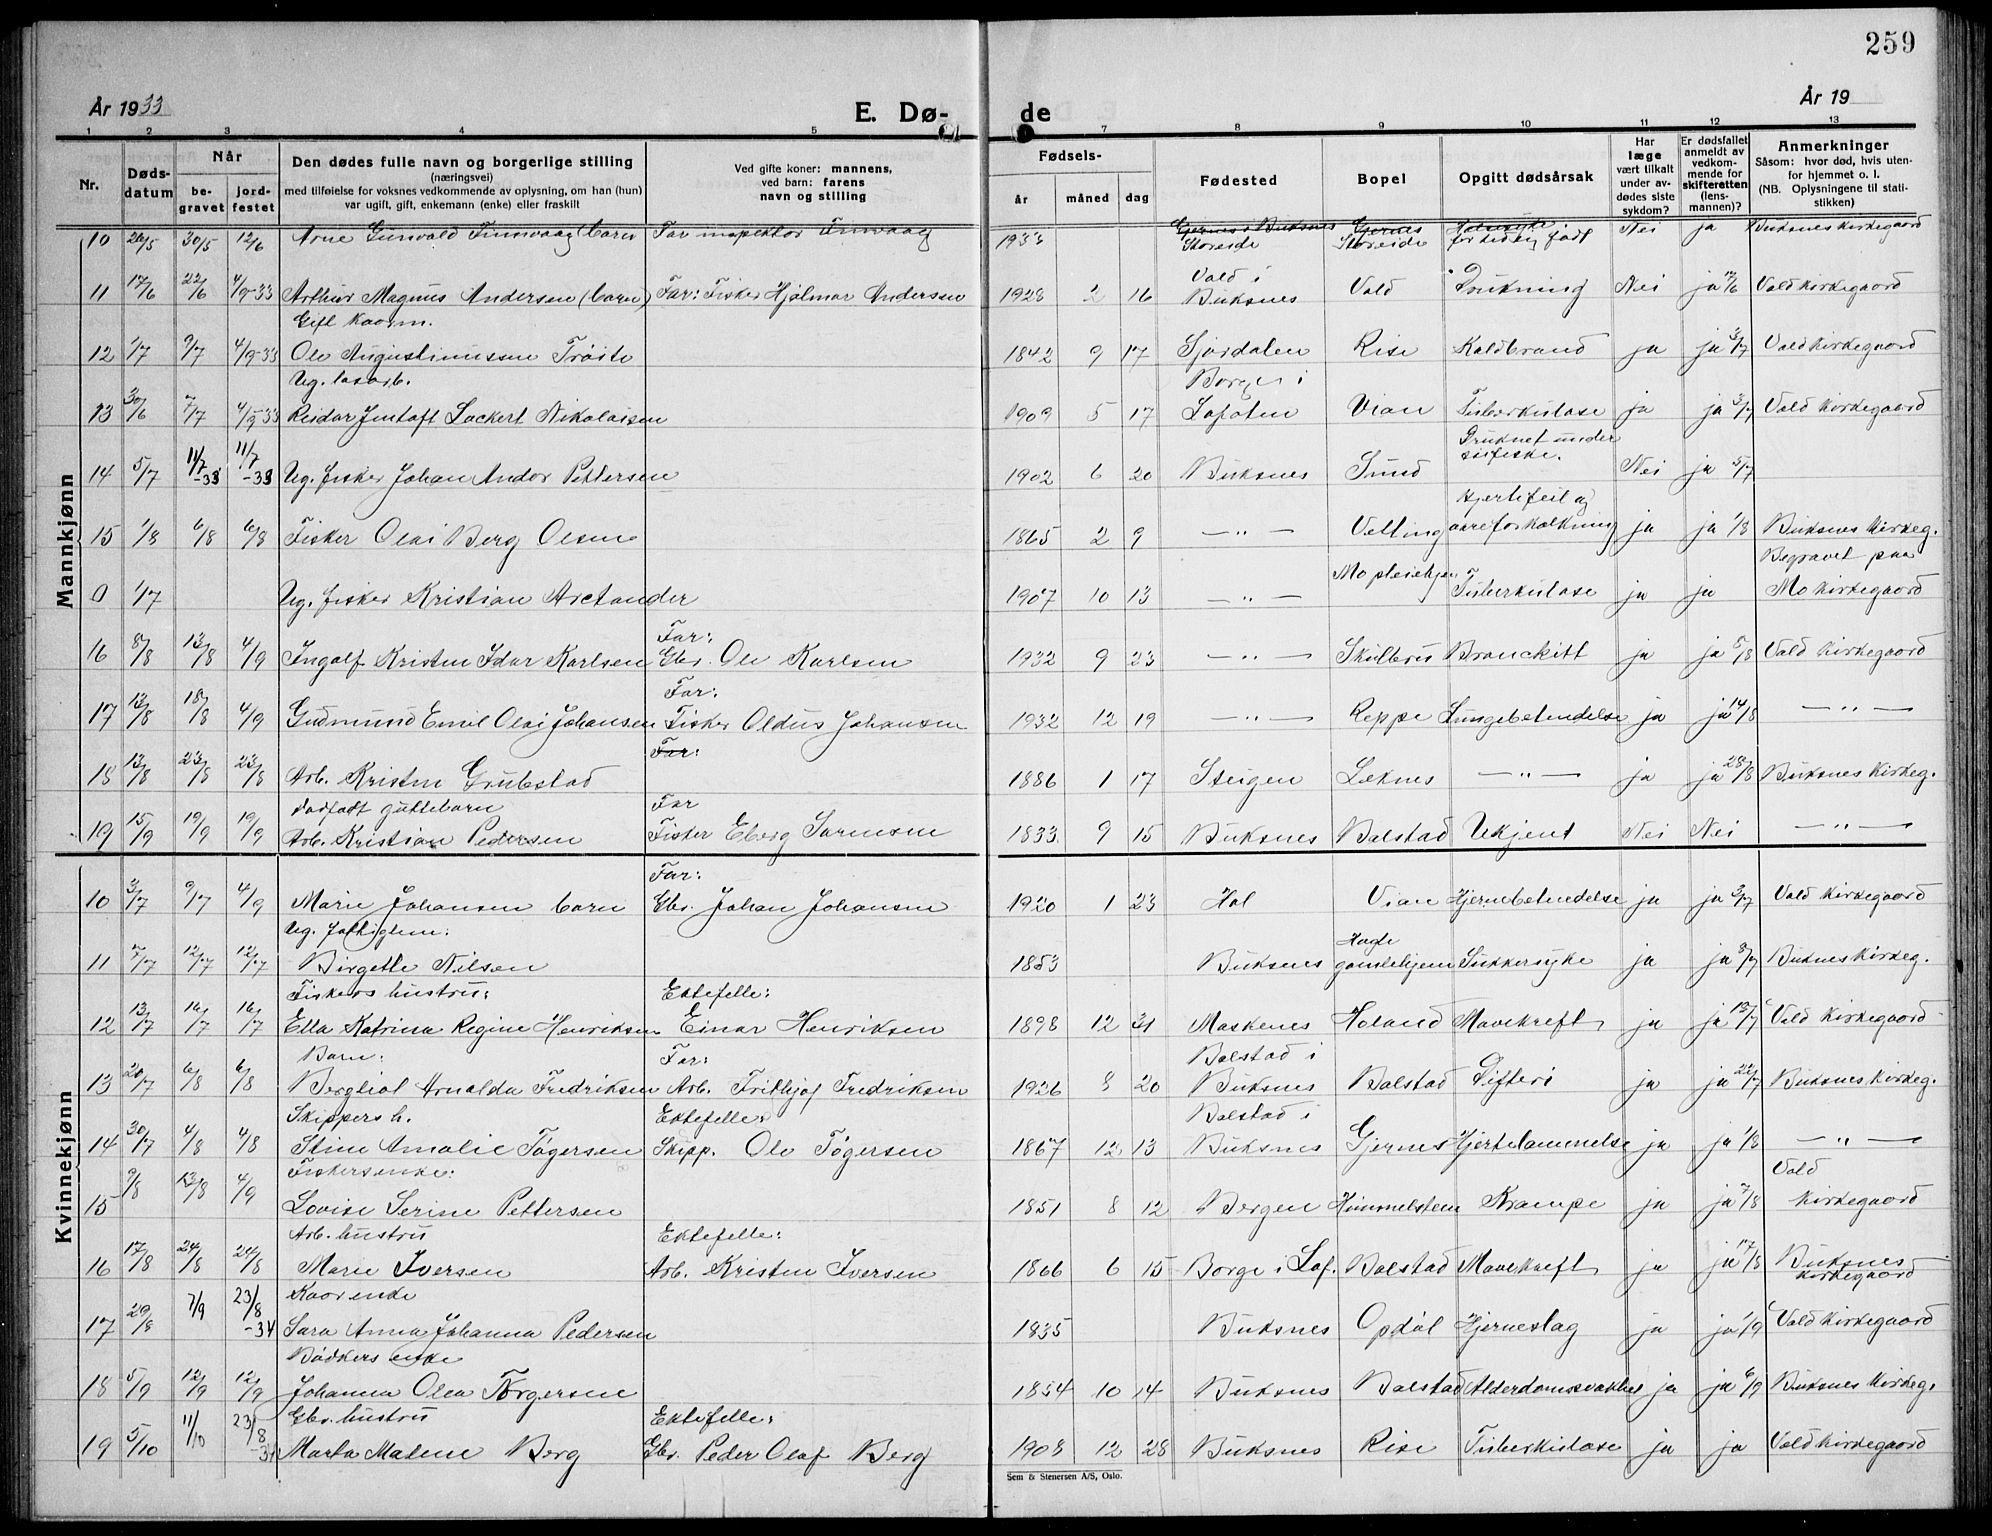 259
År 1933
E. Dø-
de
År 19
1 2 3 4 5 7 8 9 10 11 12 13
Nr.
Døds-
datum
Når
be-
gravet
jord-
festet
Den dødes fulle navn og borgerlige stilling
(næringsvei)
med tilføielse for voksnes vedkommende av oplysning, om han (hun)
var ugift, gift, enkemann (enke) eller fraskilt
Ved gifte koner: mannens,
ved barn: farens
navn og stilling
Fødsels-
år måned dag
Fødested
Bopel
Opgitt dødsårsak
Har
læge
vært tilkalt
under av-
dødes siste
sykdom?
Er dødsfallet
anmeldt av
vedkom-
mende for
skifteretten
(lens-
mannen)?
Anmerkninger
Såsom: hvor død, hvis uten-
for hjemmet o. l.
(NB. Oplysningene til stati-
stikken)
Mannkjønn
10 26/5 30/5 12/6 Arne Gunvald Finnvaag barn Far inspektør Finvaag 1933 Storeide Storeide for tidlig født Nei ja Buksnes Kirkegaard
11 17/6 22/6 4/9-33 Arthur Magnus Andersen (barn) Far: Fisker Hjalmar Andersen 1928 2 16 Vold i Buksnes Vold Drukning Nei ja 17/6 Vold Kirkegaard
Gift kaarm.
12 1/7 9/7 4/9-33 Ole Augustinussen Trøite 1842 9 17 Sjørdalen Rise Koldbrand ja ja 3/7 Vold Kirkegaard
Ug. løsarb.
13 30/6 7/7 4/9-33 Reidar Jentoft Lockert Nikolaisen 1909 5 17 Borge i Lofoten Vian Tuberkulose ja ja 3/7 Vold Kirkegaard
14 5/7 11/7-33 11/7-33 Ug. fisker Johan Andor Pettersen 1902 6 20 Buksnes Sund Druknet under seifiske. Nei ja 5/7
15 1/8 6/8 6/8 Fisker Olai Berg Olsen 1865 2 9 — " — Velting Hjertefeil og aareforkalkning ja ja 1/8 Buksnes Kirkeg.
0 1/7 Ug. fisker Kristian Arctander 1907 10 13 — " — Mo pleiehjem Tuberkulose ja ja Begravet paa Mo kirkegaard
16 8/8 13/8 4/9 Ingolf Kristen Idar Karlsen Far: Gbr. Ole Karlsen 1932 9 23 — " — Skulbru Bronckitt ja ja 8/8 Vold Kirkegaard
17 13/8 18/8 4/9 Gudmund Emil Olai Johansen Far: Fisker Oldus Johansen 1932 12 19 — " — Reppe Lungebetendelse ja ja 14/8 — " —
18 13/8 23/8 23/8 Arb. Kristen Grubstad Far: 1886 1 17 Steigen Leknes — " — ja ja 28/8 Buksnes Kirkeg.
dødfødt guttebarn
19 15/9 19/9 19/9 Arb. Kristian Pedersen Far Fisker Eberg Sørensen 1833 9 15 Buksnes Balstad Ukjent Nei Nei — " —
Kvinnekjønn
10 3/7 9/7 4/9 Marie Johansen barn Far: Gbr. Johan Johansen 1920 1 23 Hol Vian Hjernebetendelse ja ja 3/7 Vold Kirkegaard
11 7/7 12/7 12/7 Ug. fattiglem: Birgette Nilsen 1853 Buksnes Hagle gamlehjem Sukkersyke ja ja 8/7 Buknes Kirkeg.
Fiskers hustru:
12 13/7 16/7 16/7 Ella Katrina Regine Henriksen Ektefelle: Einar Henriksen 1898 12 31 Moskenes Holand Mavekreft ja ja 13/7 Vold Kirkegaard
Barn:
13 20/7 6/8 6/8 Bergliot Arnalda Fredriksen Far: Arb. Frithjof Fredriksen 1926 8 20 Balstad i Buksnes Balstad Difteri ja ja 22/7 Buksnes Kirkeg.
Skippers h.
14 30/7 4/8 4/8 Stine Amalie Tøgersen Ektefelle: Skipp. Ole Tøgersen 1867 12 13 Balstad i Buksnes Gjernes Hjertelammelse ja ja 1/8 — " —
Fiskersenke:
15 9/8 13/8 4/9 Lovise Serine Pettersen 1851 8 12 Bergen Himmelsten Krampe ja ja 9/8 Vold Kirkegaard
Arb. hustru
16 17/8 24/8 24/8 Marie Iversen Ektefelle: Arb. Kristen Iversen 1866 6 15 Borge i Lof. Balstad Mavekreft ja ja 17/8 Buksnes Kirkegaard
Kaarenke
17 29/8 7/9 23/8-34 Sara Anna Johanna Pedersen 1835 Buksnes Opdøl Hjerneslag ja ja 1/9 Vold Kirkegaard
Bødkers enke
18 5/9 12/9 12/9 Johanna Olea Torgersen 1854 10 14 Buksnes Balstad Alderdomssvakhet ja ja 6/9 Buksnes Kirkeg.
Gbr. hustru
19 5/10 11/10 23/8-34 Marta Malene Berg Ektefelle: Gbr. Peder Olaf Berg 1908 12 28 Buksnes Rise Tuberkulose ja ja Vold Kirkegaard
Sem & Stenersen A/S, Oslo.